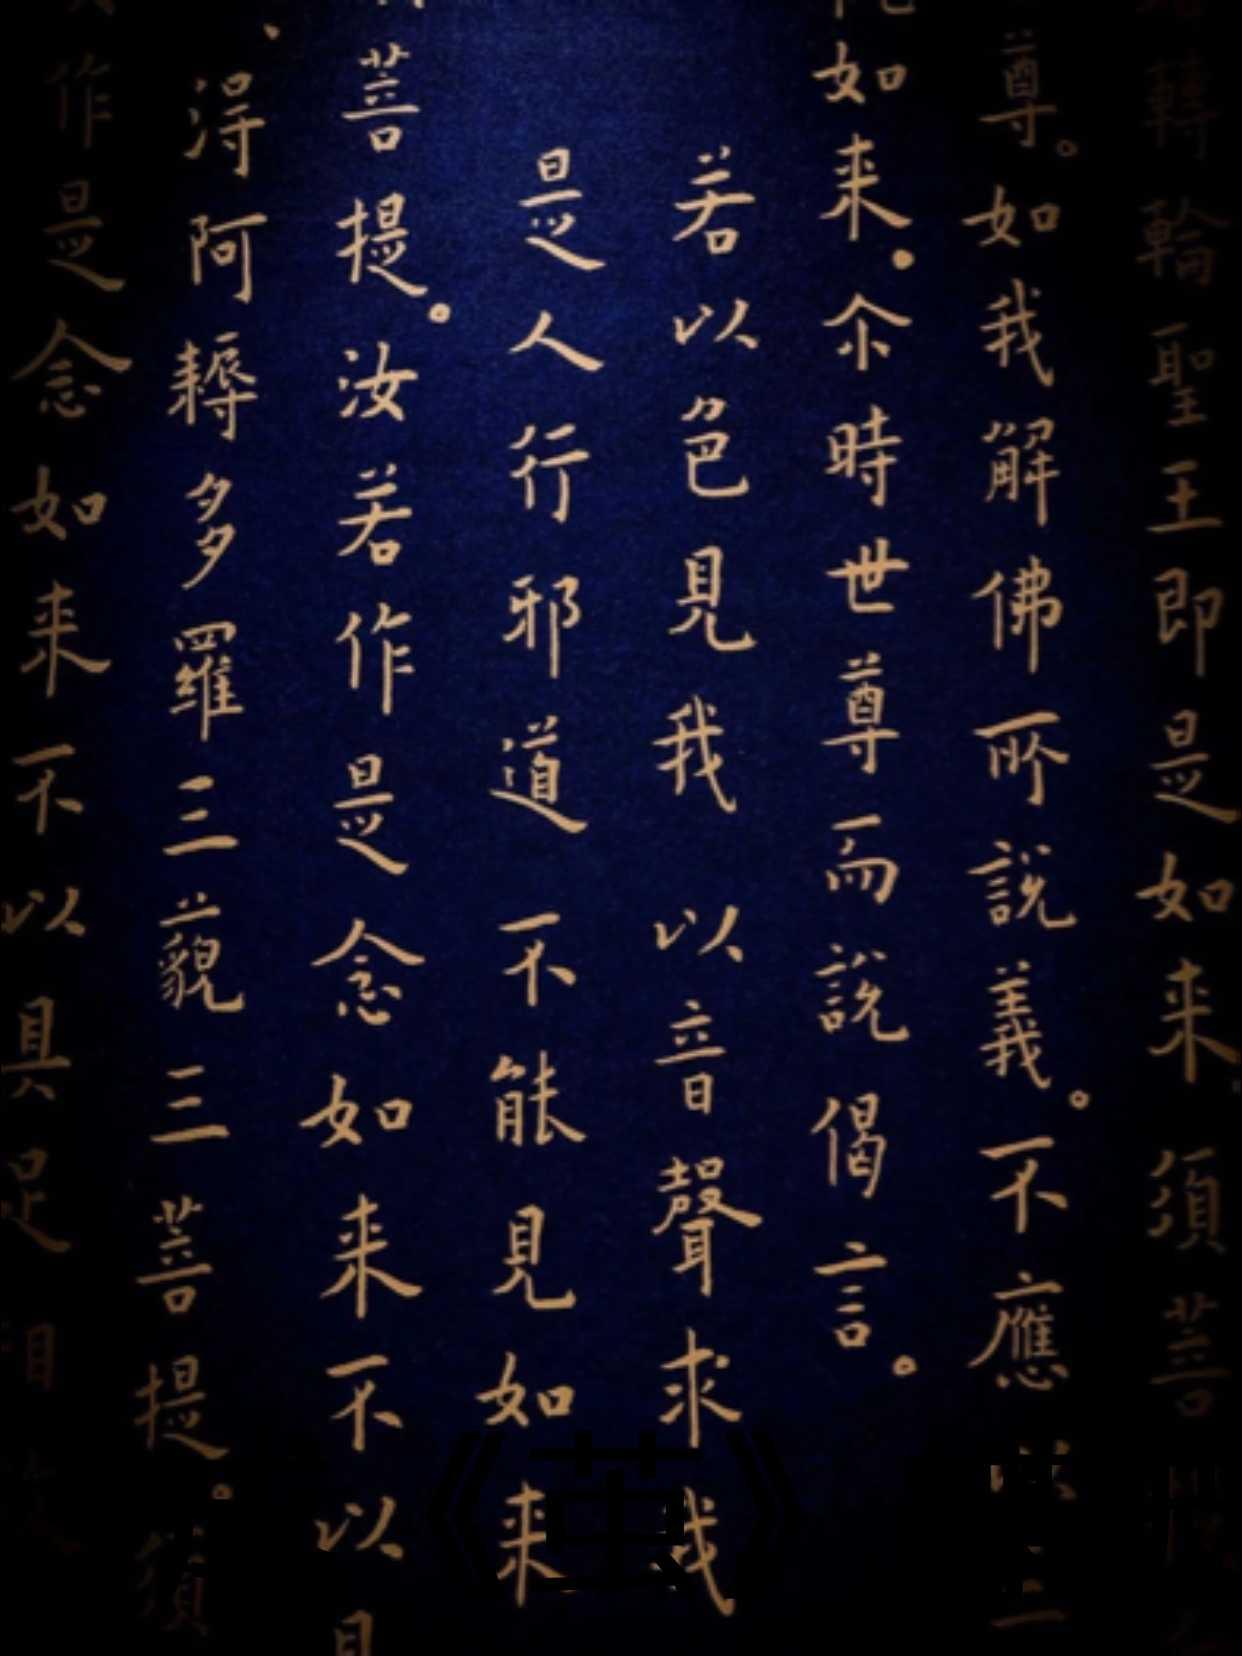 轉輪聖王即是如來須菩
尊。如我解佛所說義。不應以三
如來。尒時世尊而說偈言。
若以色見我 以音聲求我
是人行邪道 不能見如來
菩提。汝若作是念如來不以具
得阿耨多羅三藐三菩提。須
作是念如來不以具足相故
《茧》